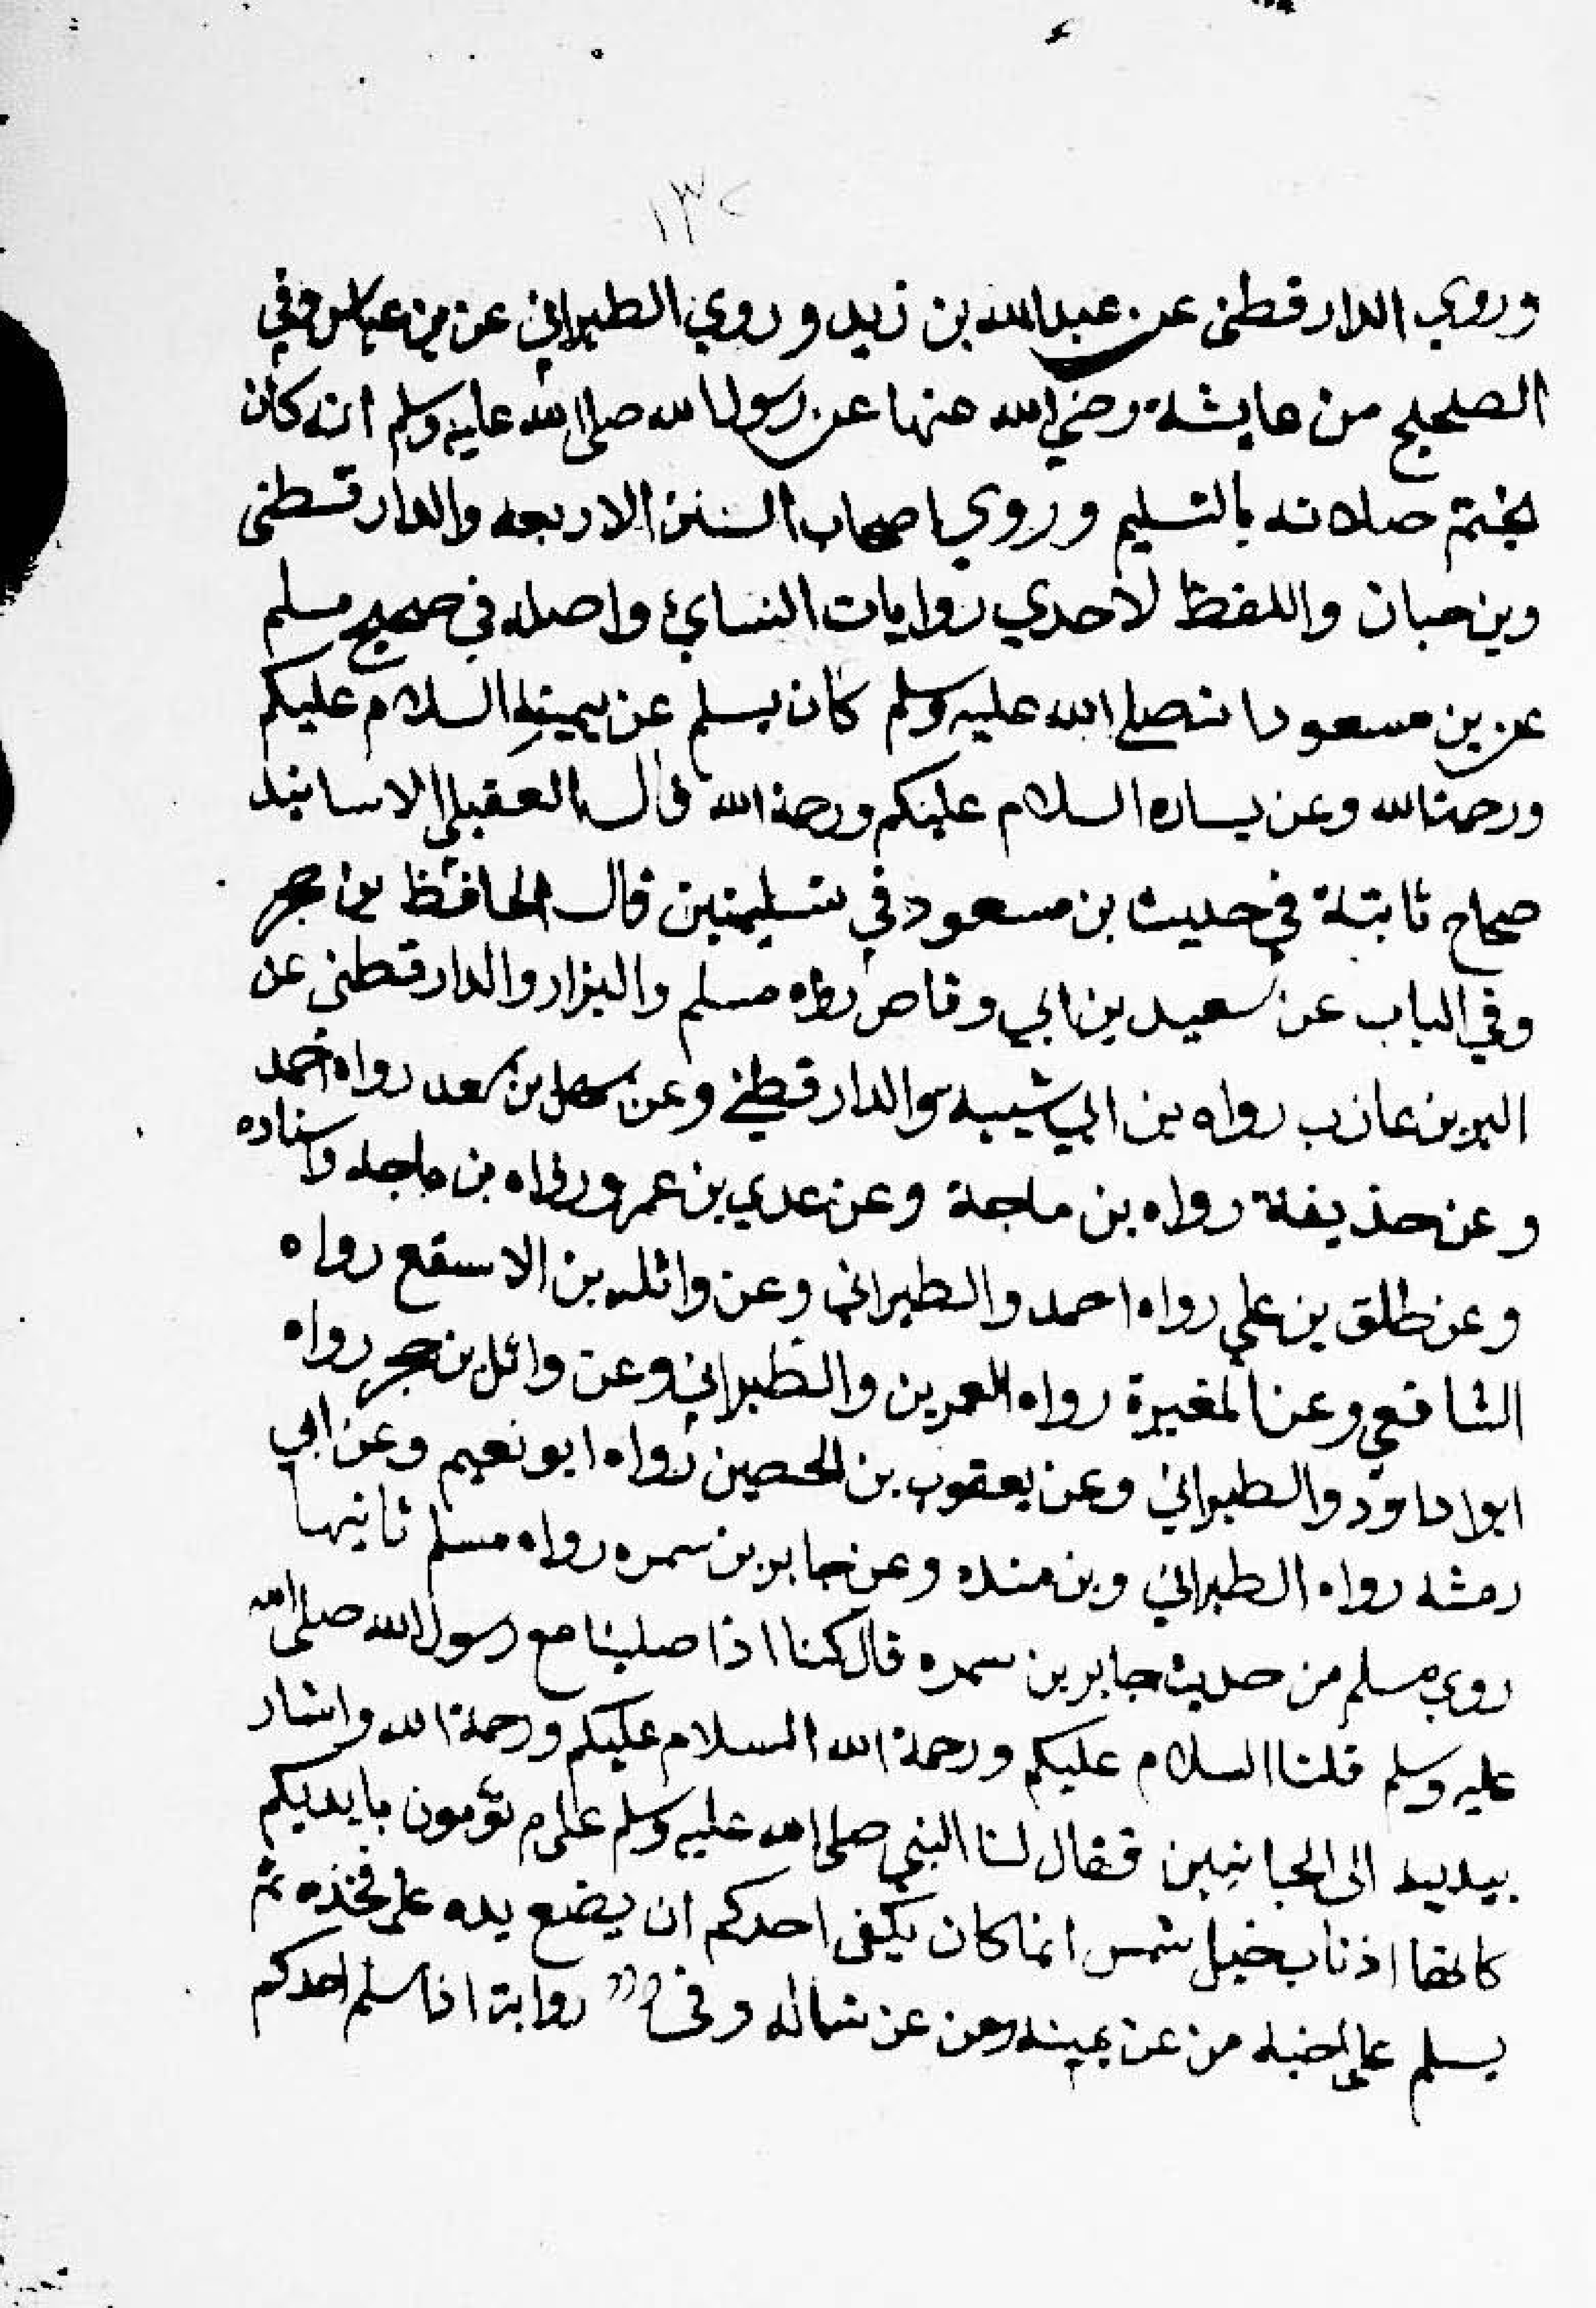 ١٣٢
وروي الدارقطنى عن عبدالله بن زيد وروي الطبراني عن بن عباس وفي
الصحيح من عايشة رضي الله عنها عن رسول الله صلى الله عليه وسلم انه كان
يختم صلاته بالتسليم وروي اصحاب السنن الاربعه والدارقطنى
وبن حبان واللفظ لاحدي روايات النسائ واصله في صحيح مسلم
عن بن مسعود انه صلى الله عليه وسلم كان يسلم عن يمينه السلام عليكم
ورحمت الله وعن يساره السلام عليكم ورحمة الله قال العقيلي الاسانيد
صحاح ثابتة في حديث بن مسعود في تسليمتين قال الحافظ بن حجر
وفي الباب عن سعيد بن ابي وقاص رواه مسلم والبزار والدارقطني عن
البر بن عازب رواه بن ابي شيبه والدارقطني وعن سهل بن سعد رواه احمد
وعن حذيفة رواه بن ماجة وعن عدي بن عمرو رواه بن ماجه واسناده
وعن طلق بن علي رواه احمد والطبراني وعن واثله بن الاسقع رواه
الشافعي وعن المغيرة رواه المعمرين والطبراني وعن وائل بن حجر رواه
ابوا داود والطبراني وعن يعقوب بن الحصين رواه ابو نعيم وعن ابي
رمثه رواه الطبراني وبن منده وعن جابر بن سمره رواه مسلم ثانيها
روي مسلم من حديث جابر بن سمره قال كنا اذا صلينا مع رسول الله صلى الله
عليه وسلم قلنا السلام عليكم ورحمة الله السلام عليكم ورحمة الله واشار
بيديه الى الجانبين فقال لنا النبي صلى الله عليه وسلم علام تؤمون بايديكم
كانها اذناب خيل شمس انما كان يكفى احدكم ان يضع يده على فخذه ثم
يسلم على اخيه من عن يمينه ومن عن شماله وفى رواية اذا سلم احدكم